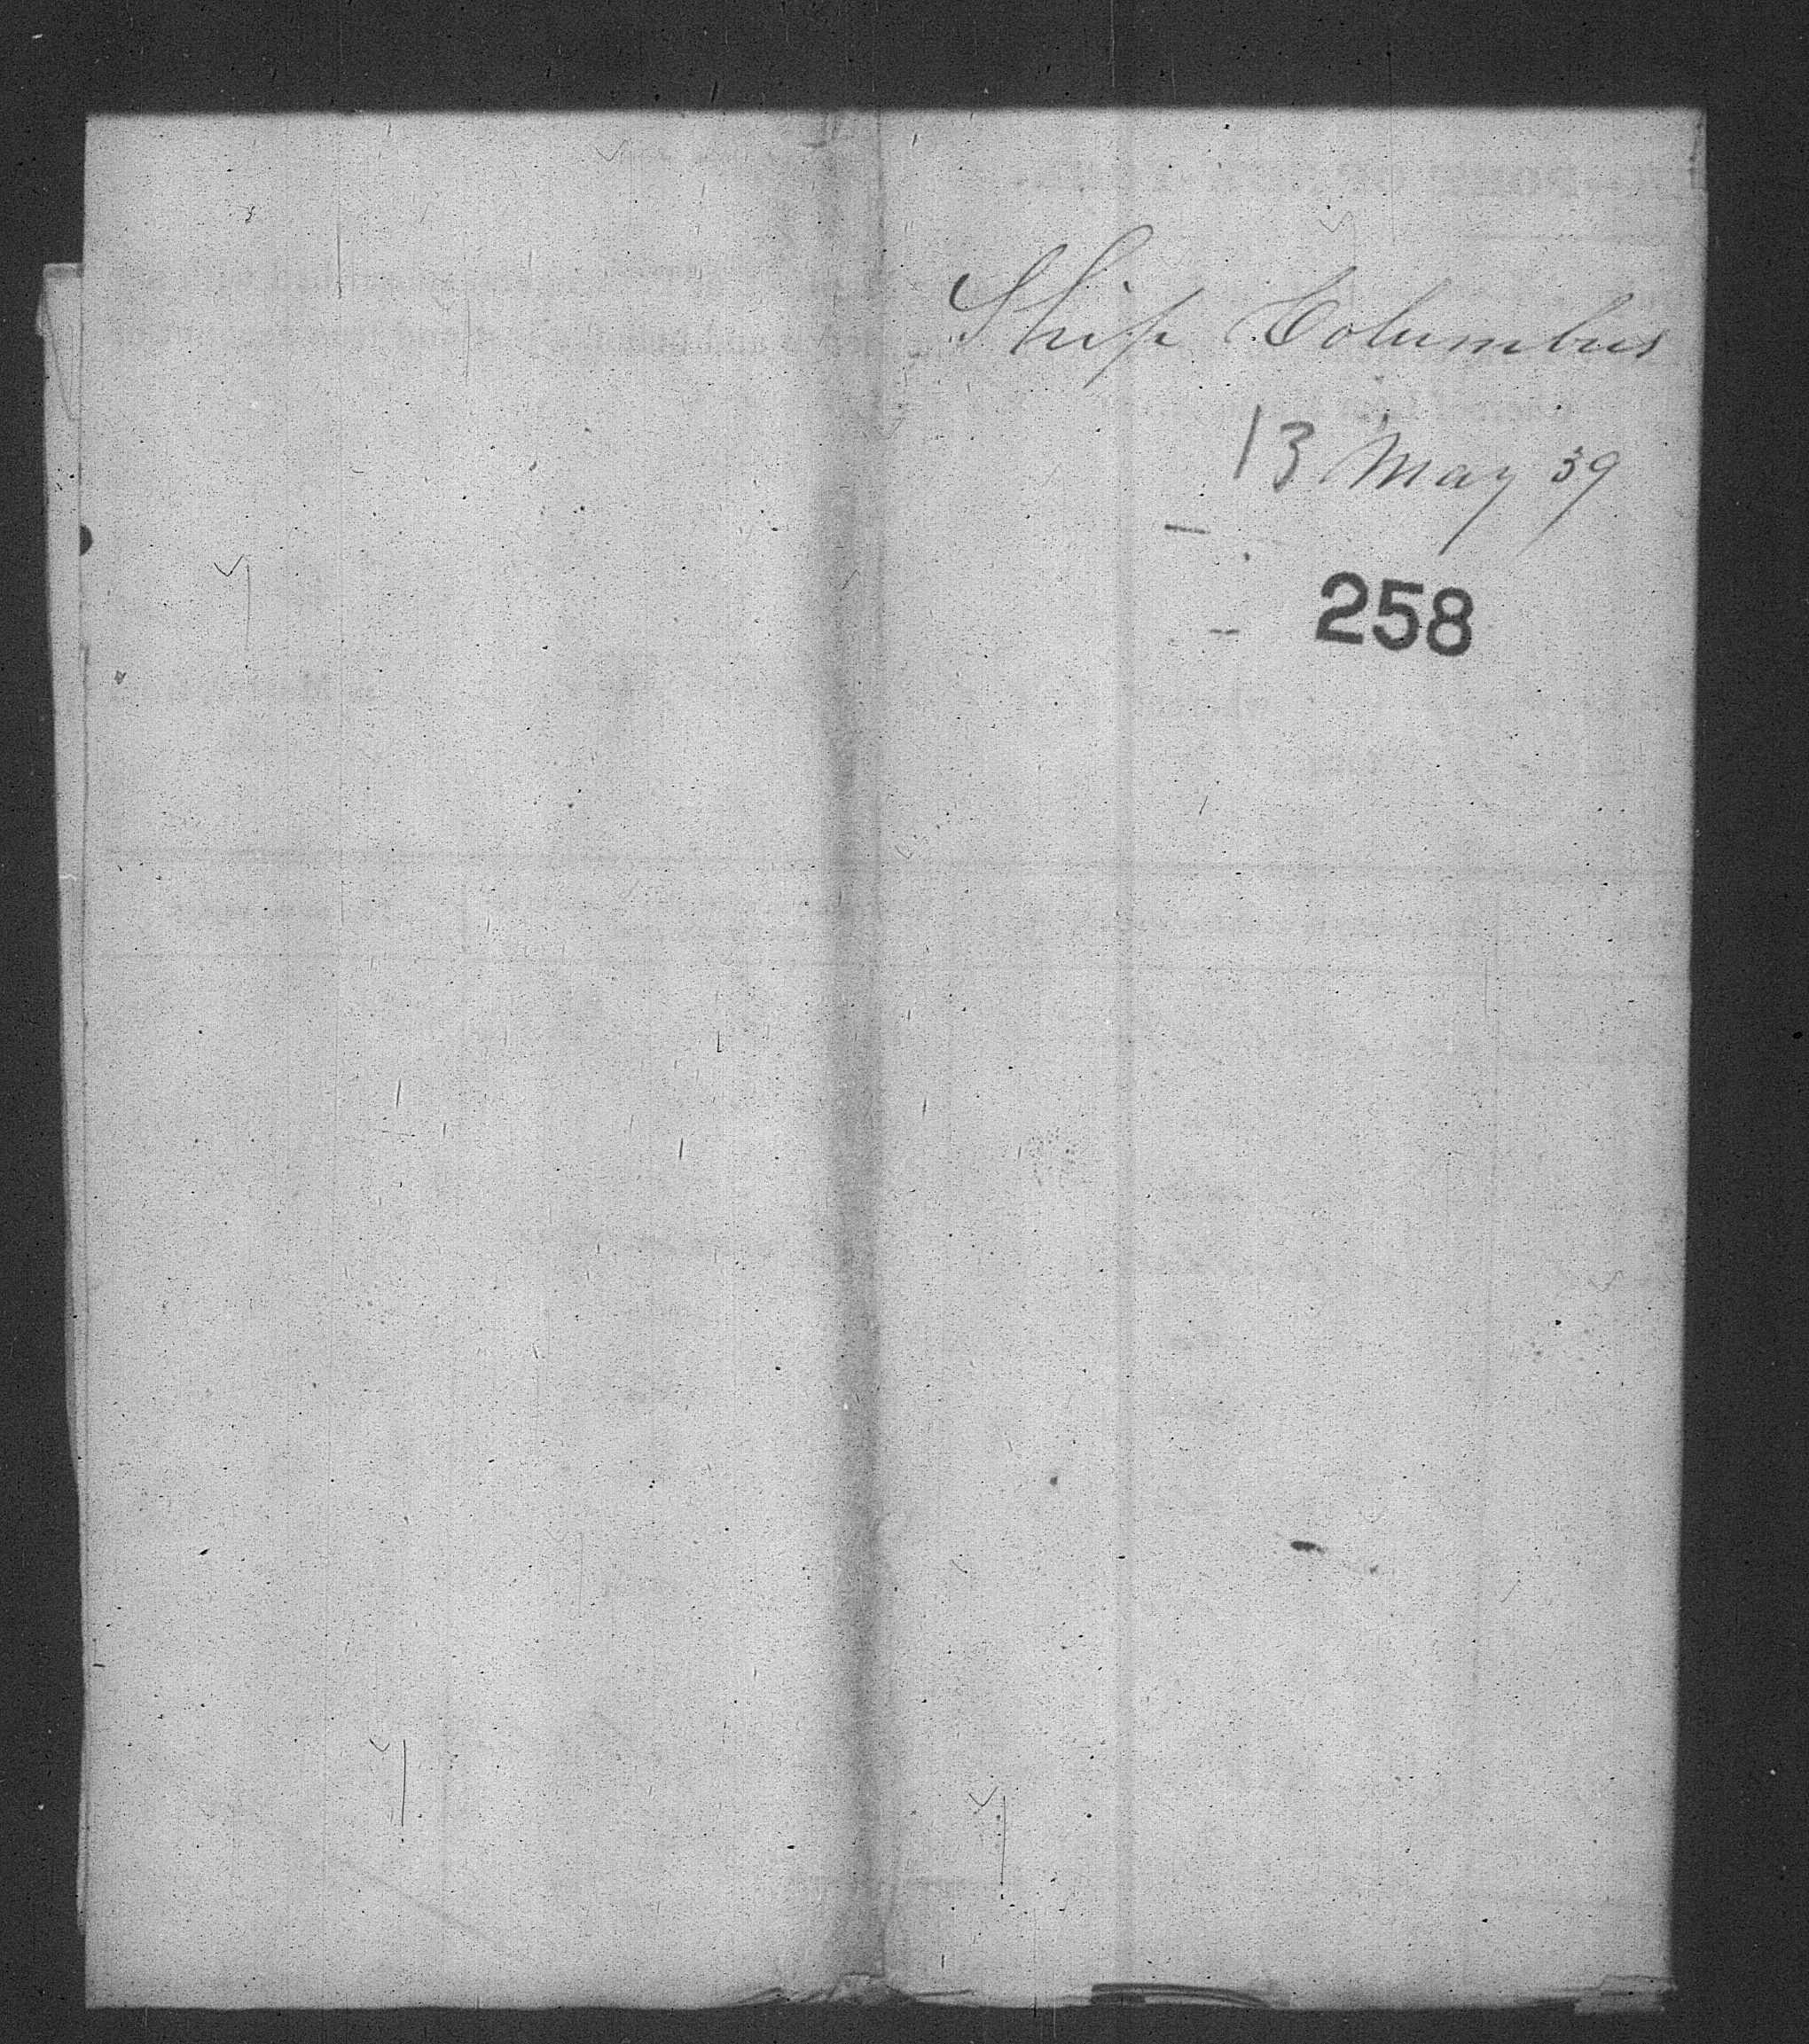 Ship Columbus
13 May 39
258